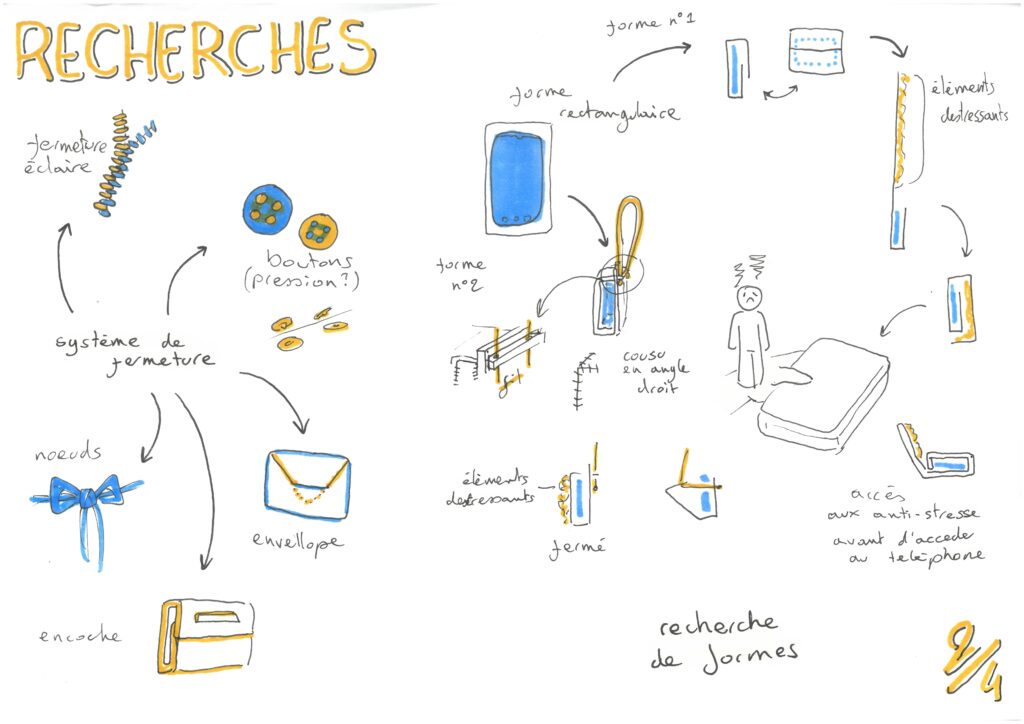 RECHERCHES
fermeture
éclaire
boutons
(pression?)
système de
fermeture
noeuds
envellope
encoche
forme
rectangulaire
forme n°1
éléments
destressants
forme
n°2
fil
cousu
en angle
droit
éléments
destressants
fermé
accès
aux anti-stresse
avant d'accede
au telèphone
recherche
de formes
2/4